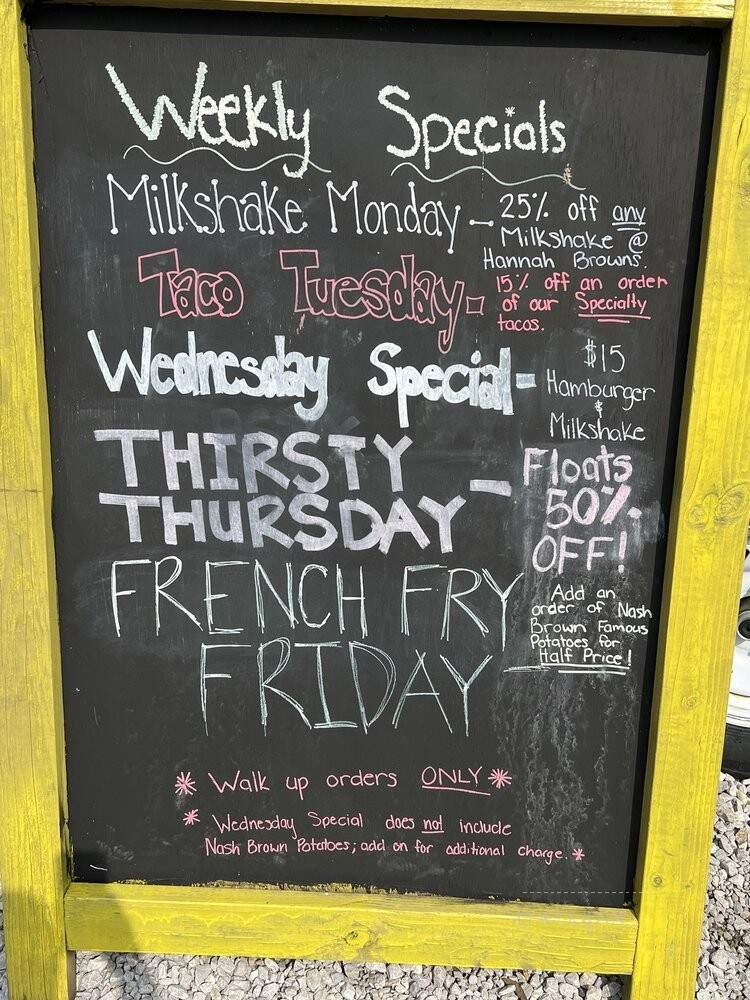 Weekly Specials
Milkshake Monday - 25% off any
Milkshake @
Hannah Browns.
Taco Tuesday - 15% off an order
of our Specialty
tacos.
Wednesday Special - $15
Hamburger
&
Milkshake
THIRSTY
THURSDAY - Floats
50%
OFF!
FRENCH FRY
FRIDAY
Add an
order of Nash
Brown Famous
Potatoes for
Half Price!
* Walk up orders ONLY *
* Wednesday Special does not include
Nash Brown Potatoes; add on for additional charge. *